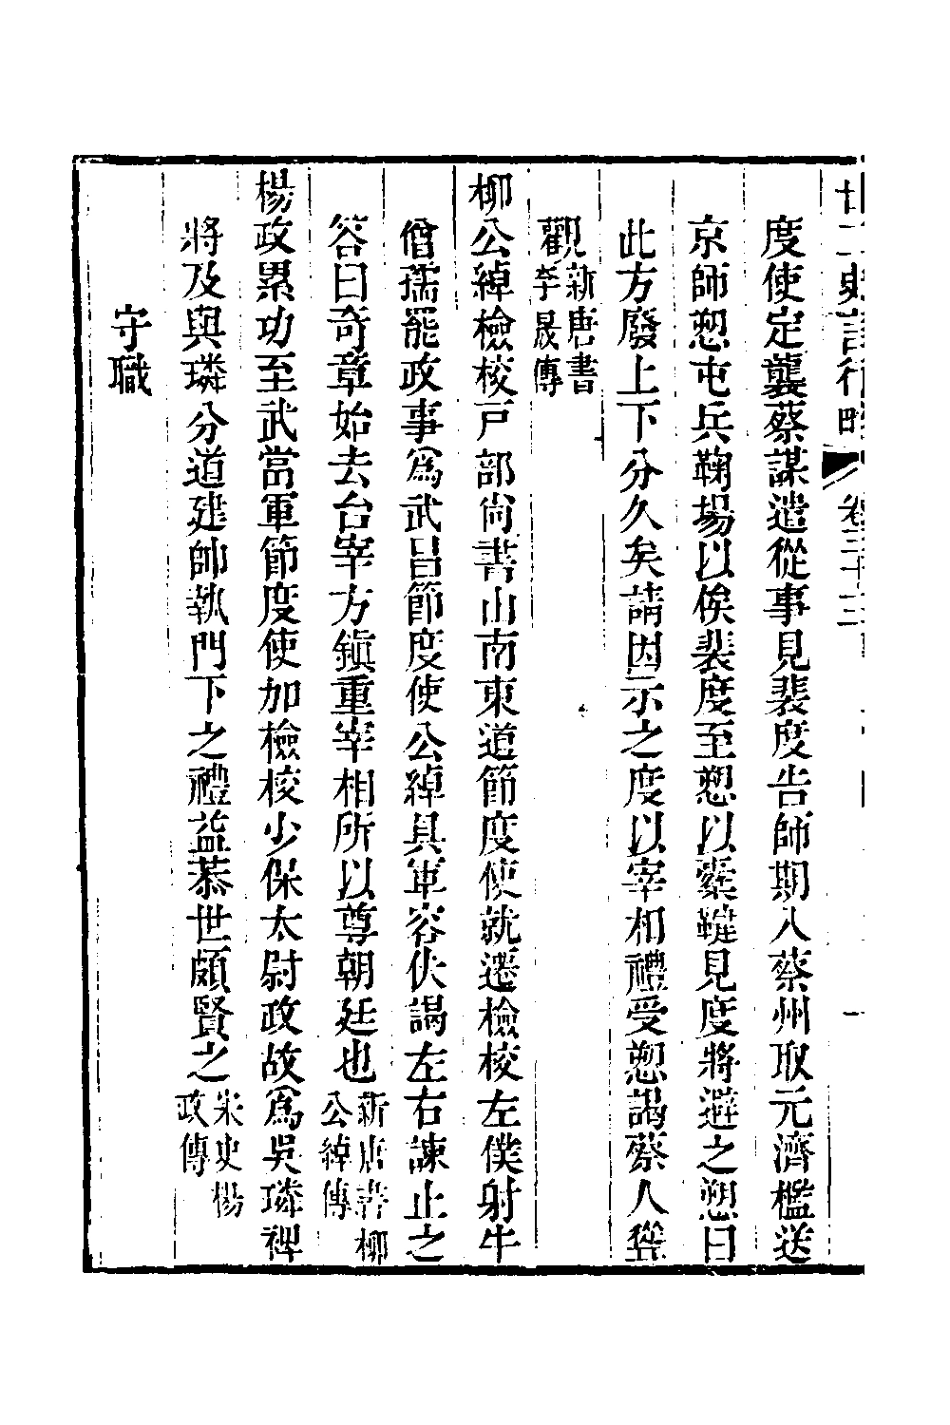 廿二史言行略 卷三十三
度使定襲蔡謀遣從事見裴度告師期入蔡州取元濟檻送
京師愬屯兵鞠場以俟裴度至愬以櫜鞬見度將避之愬曰
此方廢上下分久矣請因示之度以宰相禮受愬謁蔡人聳
觀新唐書李晟傳
柳公綽檢校戸部尚書山南東道節度使就遷檢校左僕射牛
僧孺罷政事爲武昌節度使公綽具軍容伏謁左右諫止之
答曰奇章始去台宰方鎮重宰相所以尊朝廷也新唐書柳公綽傳
楊政累功至武當軍節度使加檢校少保太尉政故爲吳璘裨
將及與璘分道建帥執門下之禮益恭世頗賢之宋史楊政傳
守職